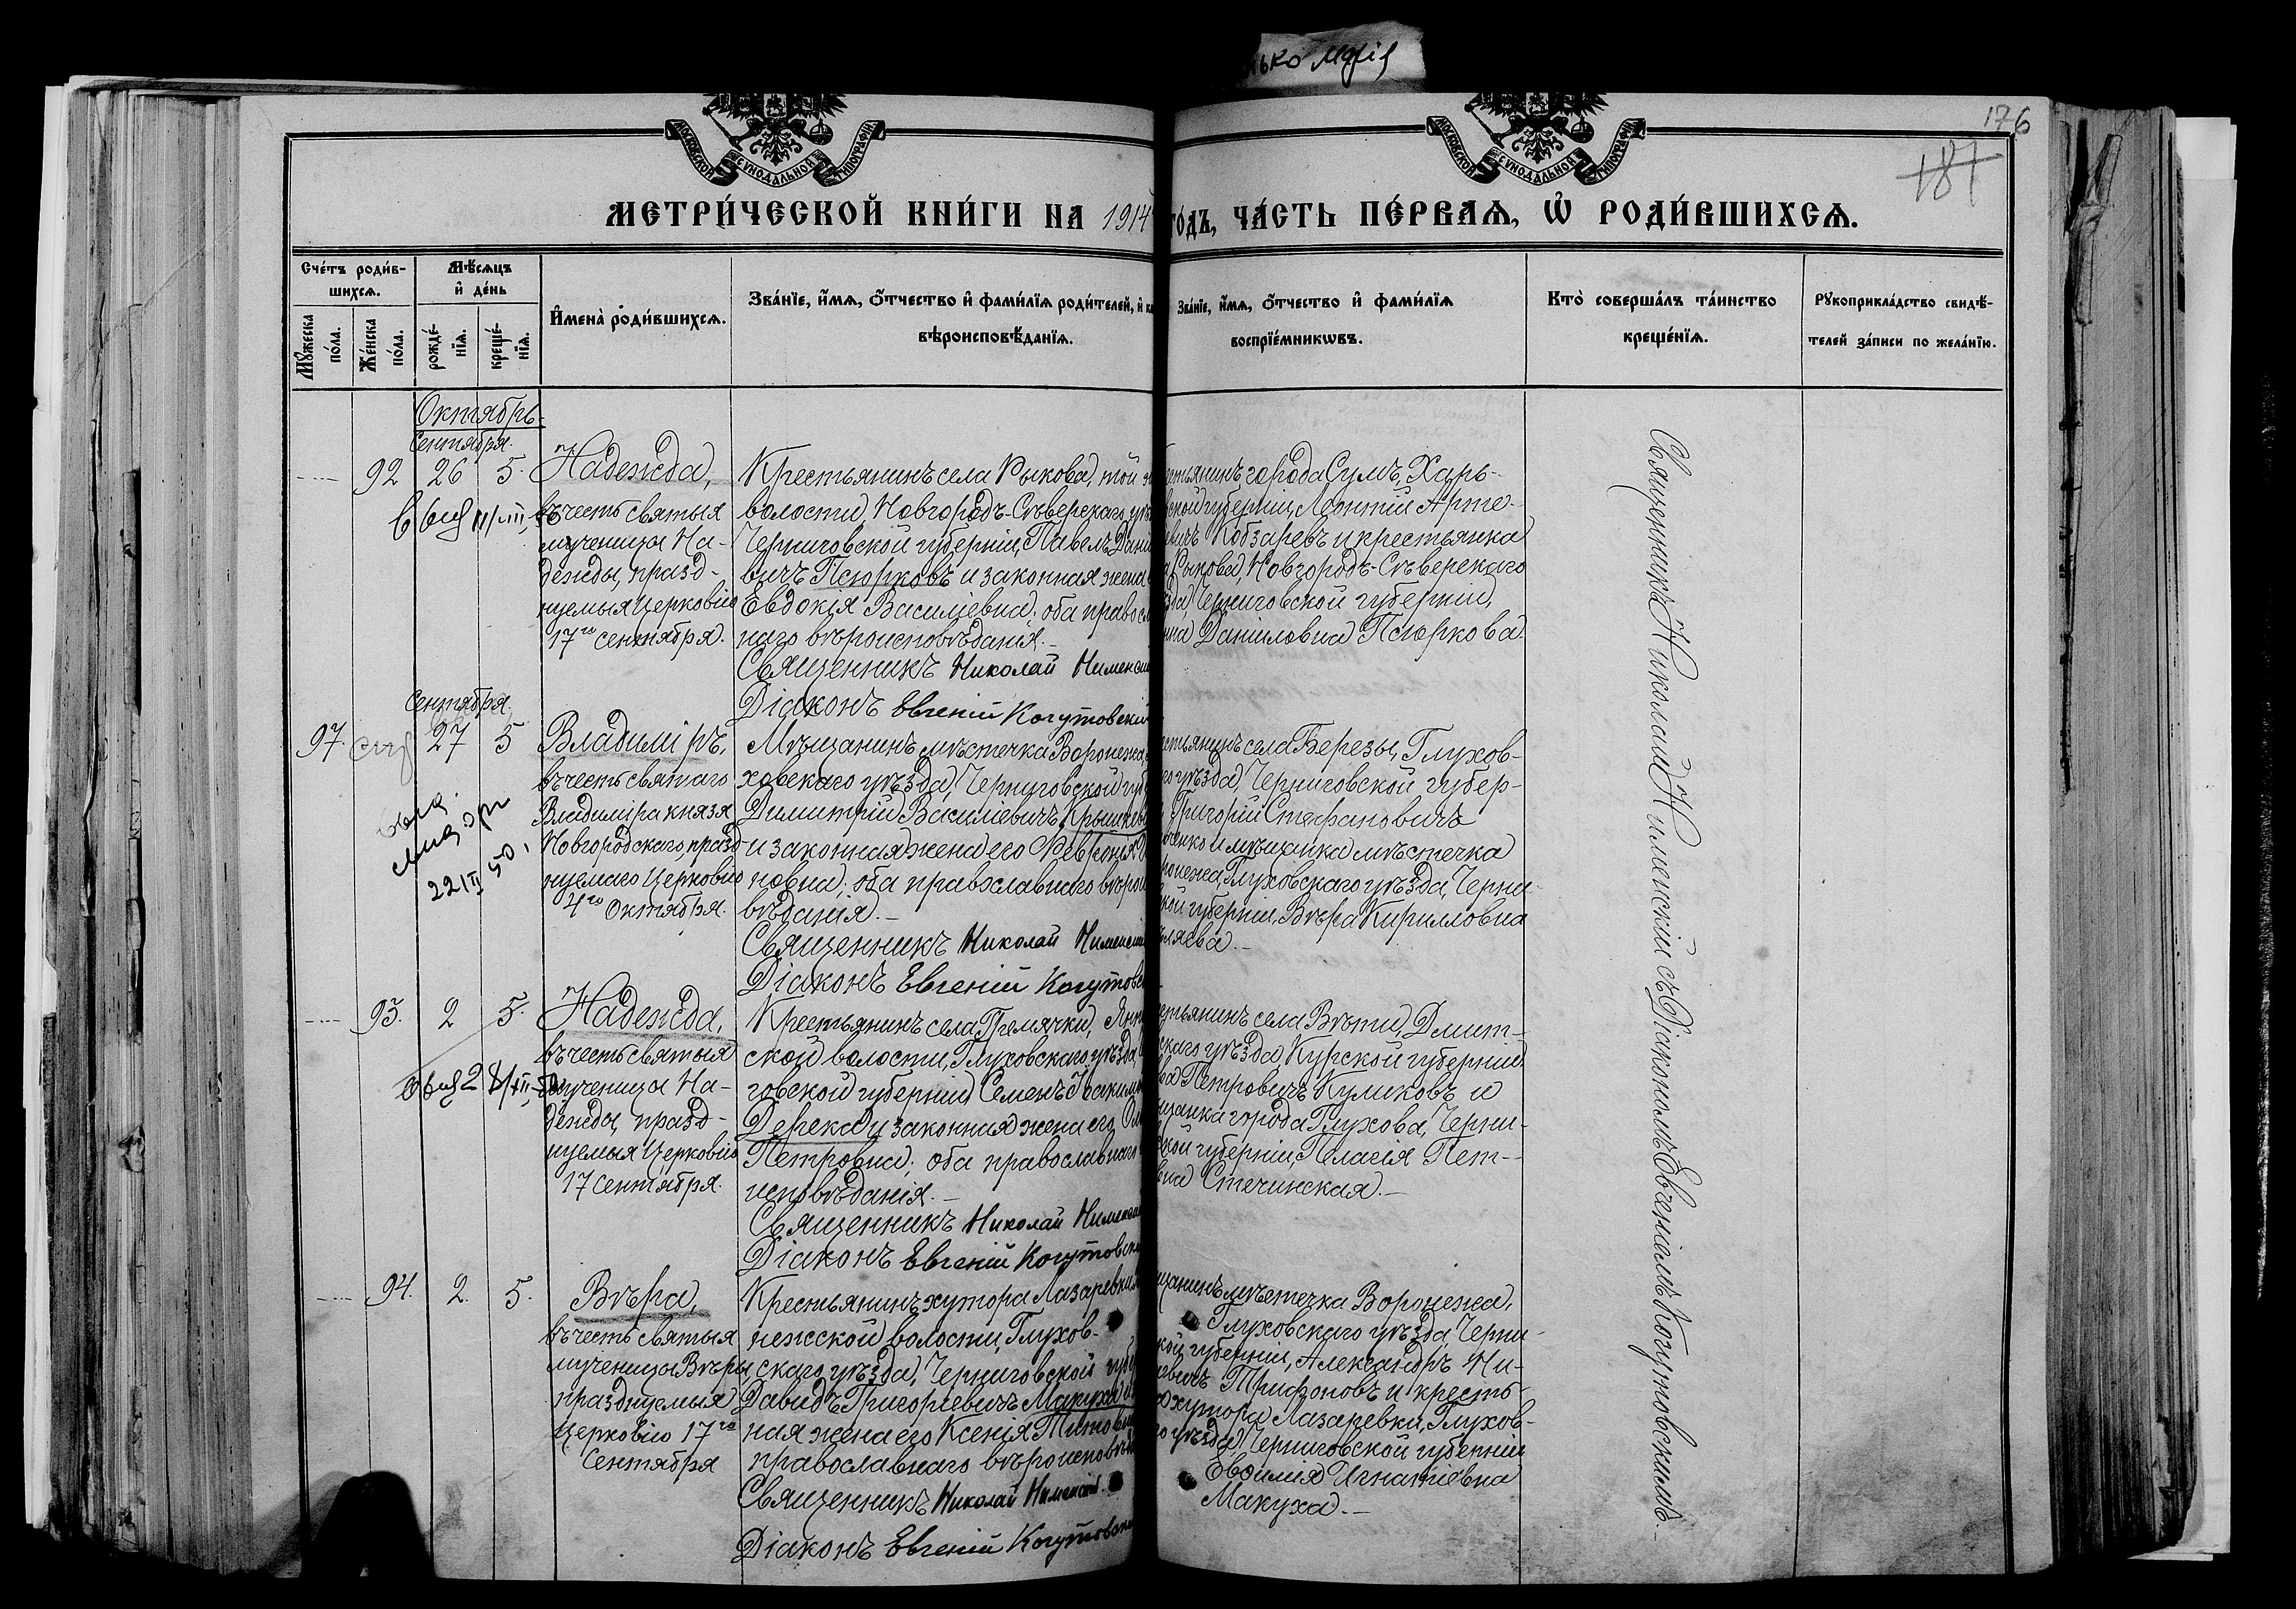 ько марія
176
181
МОСКОВСКОЙ СѴНОДАЛЬНОЙ ТИПОГРАФІИ
МОСКОВСКОЙ СѴНОДАЛЬНОЙ ТИПОГРАФІИ
МЕТРИ́ЧЕСКОЙ КНИ́ГИ НА 1914
ГО́ДЪ, ЧА́СТЬ ПЕ́РВАѦ, Ѽ РОДИ́ВШИХСѦ.
Сче́тъ роди́в-
шихсѧ.
Мѣ́сѧцъ
и҆ де́нь
И҆мена̀ роди́вшихсѧ.
Зва́нїе, и҆́мѧ, ѻ҆́тчество и҆ фами́лїѧ роди́телей, и҆
вѣроисповѣ́данїѧ.
Мꙋ́жеска
по́ла.
Же́нска
по́ла.
рожде́-
нїѧ.
креще́-
нїѧ.
Зва́нїе, и҆́мѧ, ѻ҆́тчество и҆ фами́лїѧ
воспрїе́мникѡвъ.
Кто̀ соверша́лъ та́инство
креще́нїѧ.
Рꙋкоприкла́дство свидѣ́-
телей за́писи по жела́нїю.
Октябрь.
Сентября.
92 26 5.
Надежда,
въ честь святыя
мученицы На-
дежды, празд-
нуемыя Церковію
17го сентября.
Крестьянинъ села Рыкова, той
волости, Новгородъ-Сѣверскаго
Черниговской губерніи, Павелъ Дані
вичъ Псюрковъ и законная жена
Евдокія Василіевна; оба правосл
наго вѣроисповѣданія.-
Священникъ Николай
Діаконъ Евгеній Когутовскій
города Сумъ, Харь-
ской губерніи, Леонтій Арте-
евичъ Кобзаревъ и крестьянка
Рыкова, Новгородъ-Сѣверскаго
зда Черниговской губерніи,
Даніиловна Псюркова.
Сентября.
97. 27 5
22 II 50,
Владиміръ,
въ честь святаго
Владиміра князя
Новгородскаго, празд-
нуемаго Церковію
4го Октября.
Мѣщанинъ мѣстечка Воронежа,
ховскаго уѣзда, Черниговской губ
Димитрій Василіевичъ
и законная жена его Февронія
новна; оба православнаго вѣроис
вѣданія.-
Священникъ Николай
Діаконъ Евгеній Когутовс
стьянинъ села Березы, Глухов-
го уѣзда, Черниговской губер-
Григорій Стефановичъ
енко и мѣщанка мѣстечка
ронежа, Глуховскаго уѣзда, Черни-
ской губерніи, Вѣра Кирилловна
ляева.-
93. 2 5.
Надежда,
въ честь святыя
мученицы На-
дежды, празд-
нуемыя Церковію
17 Сентября.
Крестьянинъ села
ской волости, Глуховскаго уѣзда,
говской губерніи Семенъ
Дерека и законная жена его,
Петровна; оба православнаго
исповѣданія.-
Священникъ Николай
Діаконъ Евгеній Когутовск
стьянинъ села Дмит-
скаго уѣзда Курской губерніи
Петровичъ Куликовъ и
щанка города Глухова, Черни-
ской губерніи, Пелагія Пет-
вна Стечинская.-
94. 2. 5.
Вѣра,
въ честь святыя
мученицы Вѣры,
празднуемыя
Церковію 17го
Сентября
Крестьянинъ хутора Лазаревки,
нежской волости, Глухов-
скаго уѣзда, Черниговской губер
Давидъ Григоріевичъ Макуха
ная жена его Ксенія Титовна
православнаго вѣроисповѣд
Священникъ Николай
Діаконъ Евгеній Когутовск
щанинъ мѣстечка Воронежа,
Глуховскаго уѣзда, Черни-
кой губерніи, Александръ Ни-
Трифоновъ и кресть-
хутора Лазаревки, Глухов-
го уѣзда Черниговской губерніи
Евѳимія Игнатіевна
Макуха.-
Священникъ Николай Нименскій съ Діакономъ Евгеніемъ Когутовскимъ.